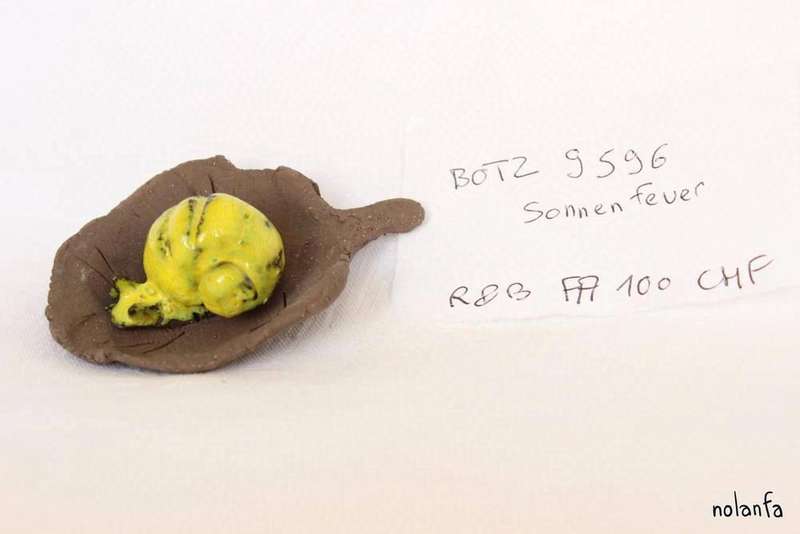 BOTZ 9596
Sonnenfeuer
R&B 100 CHF
nolanfa